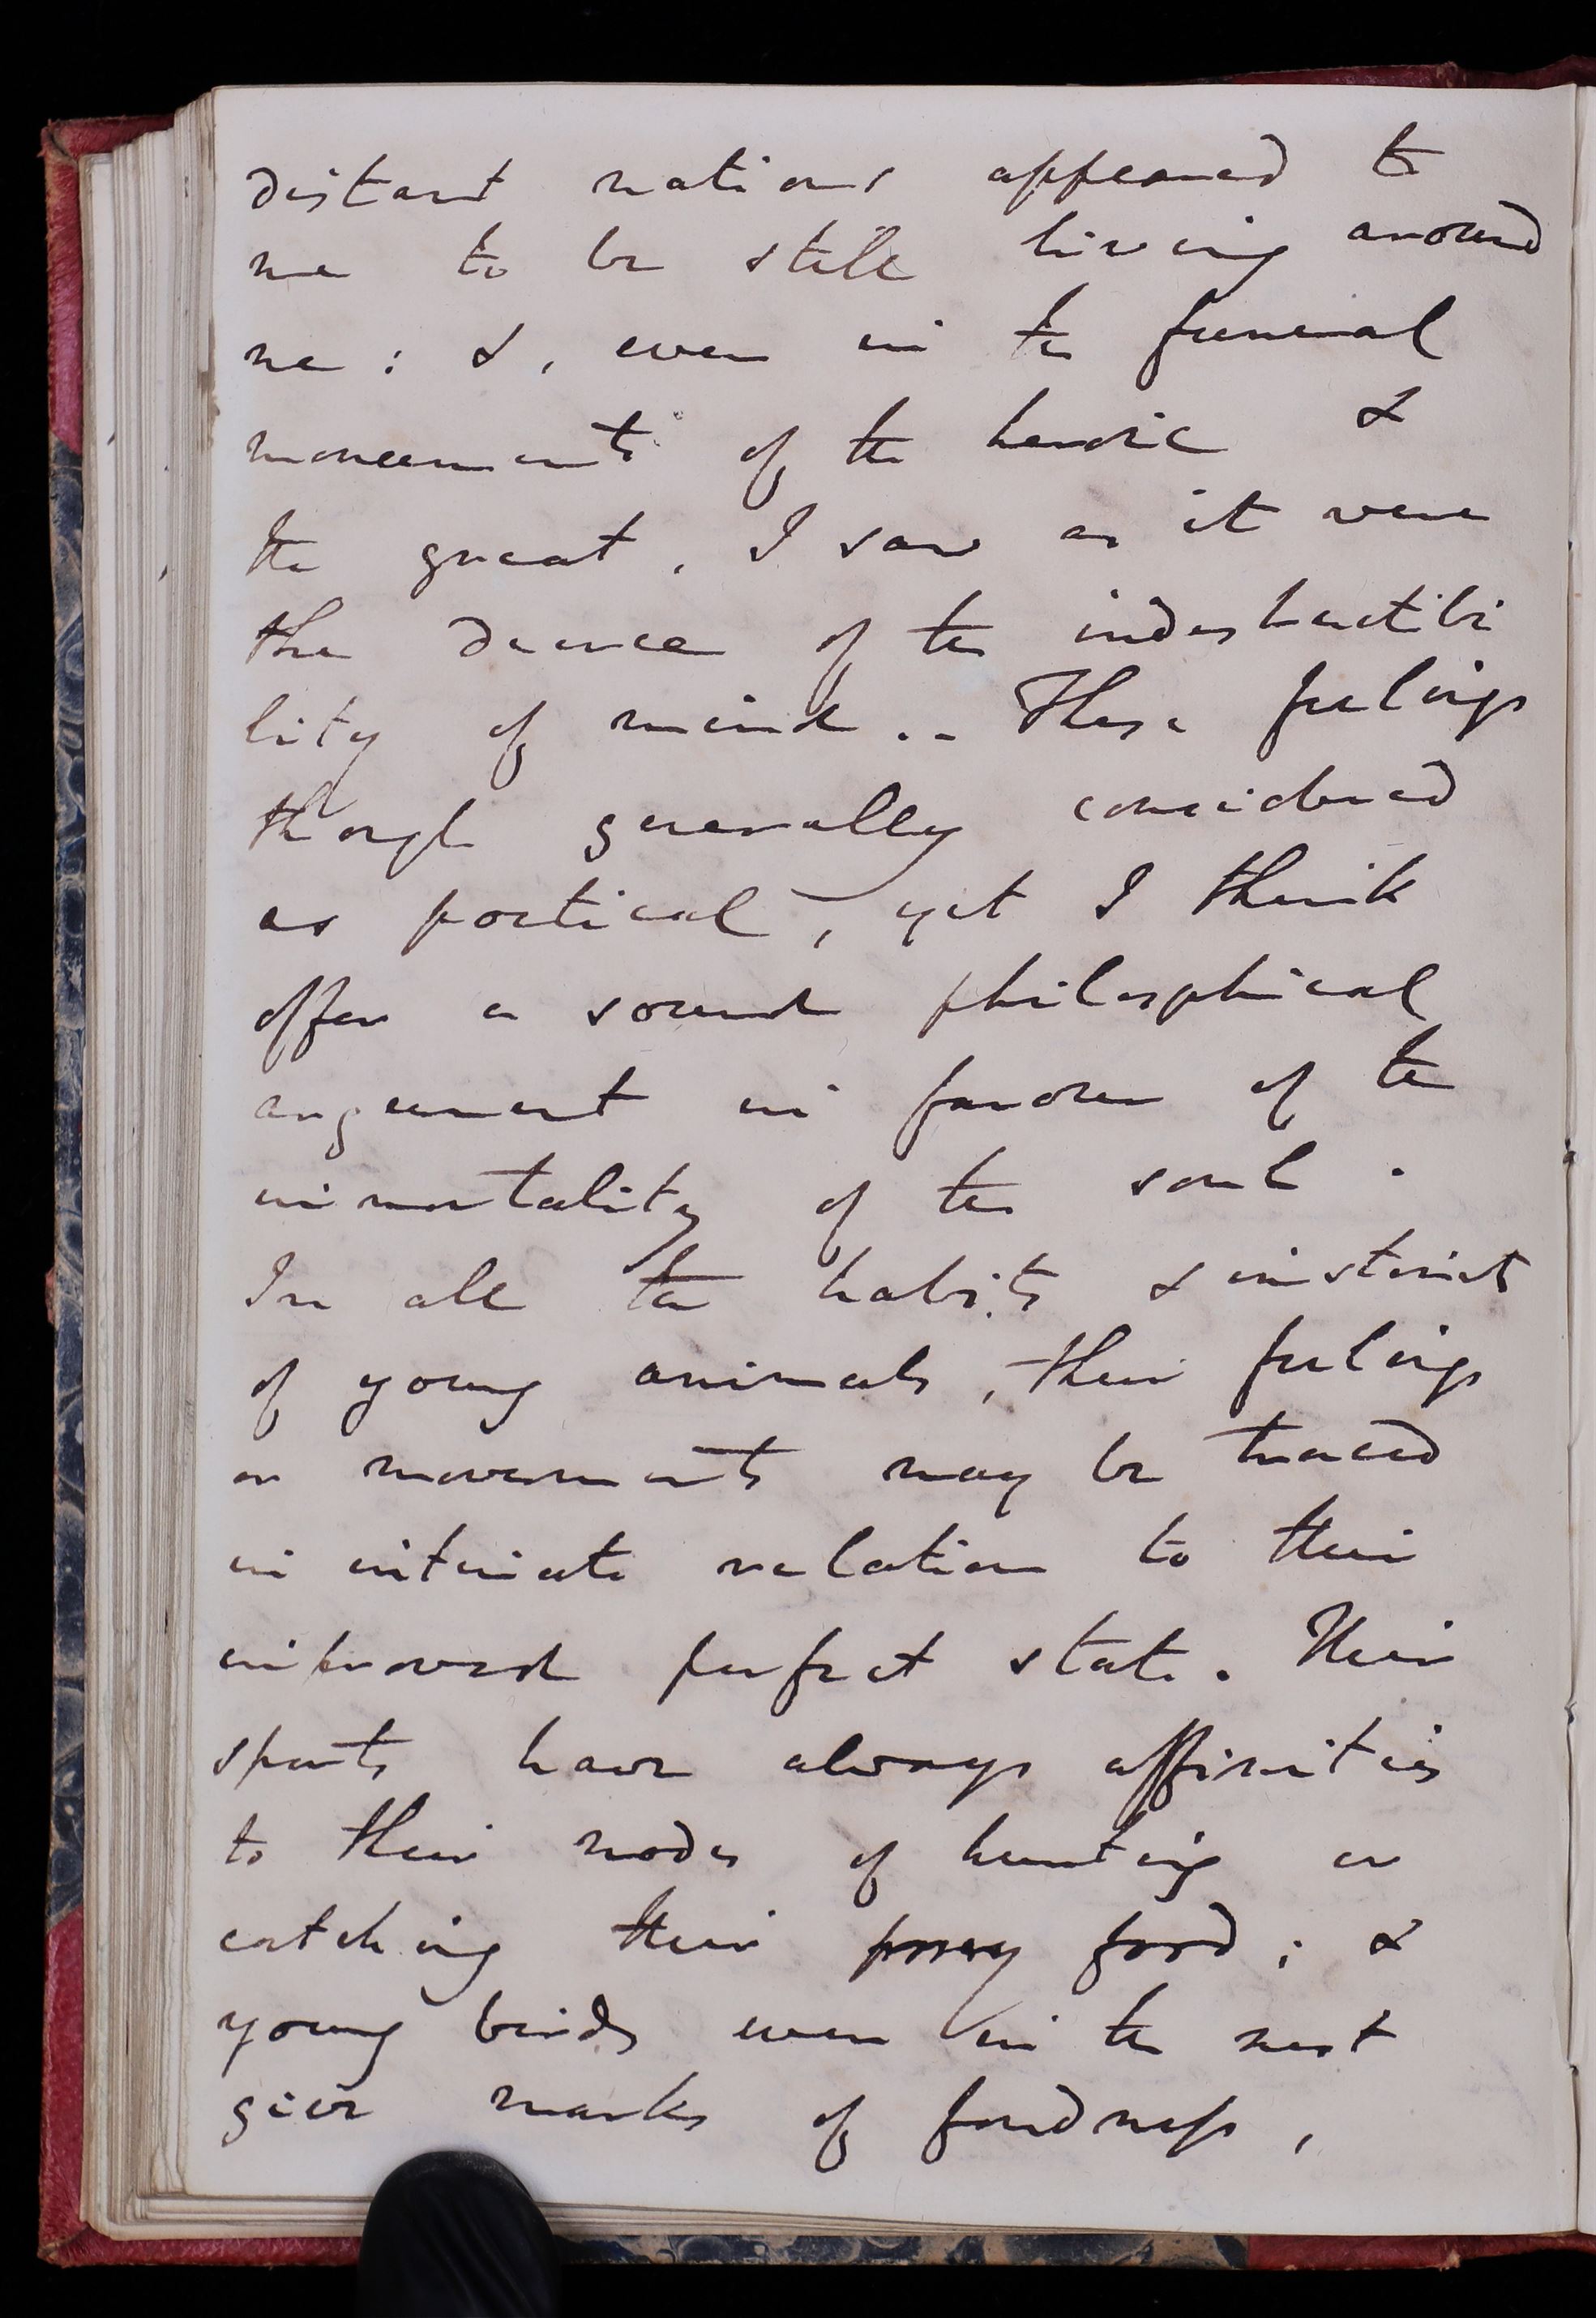 distant nations appeared to
me to be still living around
me: &, even in the funeral
monuments of the heroic &
the great, I saw as it were
the decree of the indestructibi
lity of mind.-- These feelings
though generally considered
as poetical, yet I think
offer a sound philosphical
argument in favour of the
immortality of the soul.
In all the habits & instincts
of young animals, their feelings
or movements may be traced
in intimate relation to their
improved perfect state. Their
sports have always affinities
to their modes of hunting or
catching their prey food; &
young birds even in the nest
give marks of fondness,